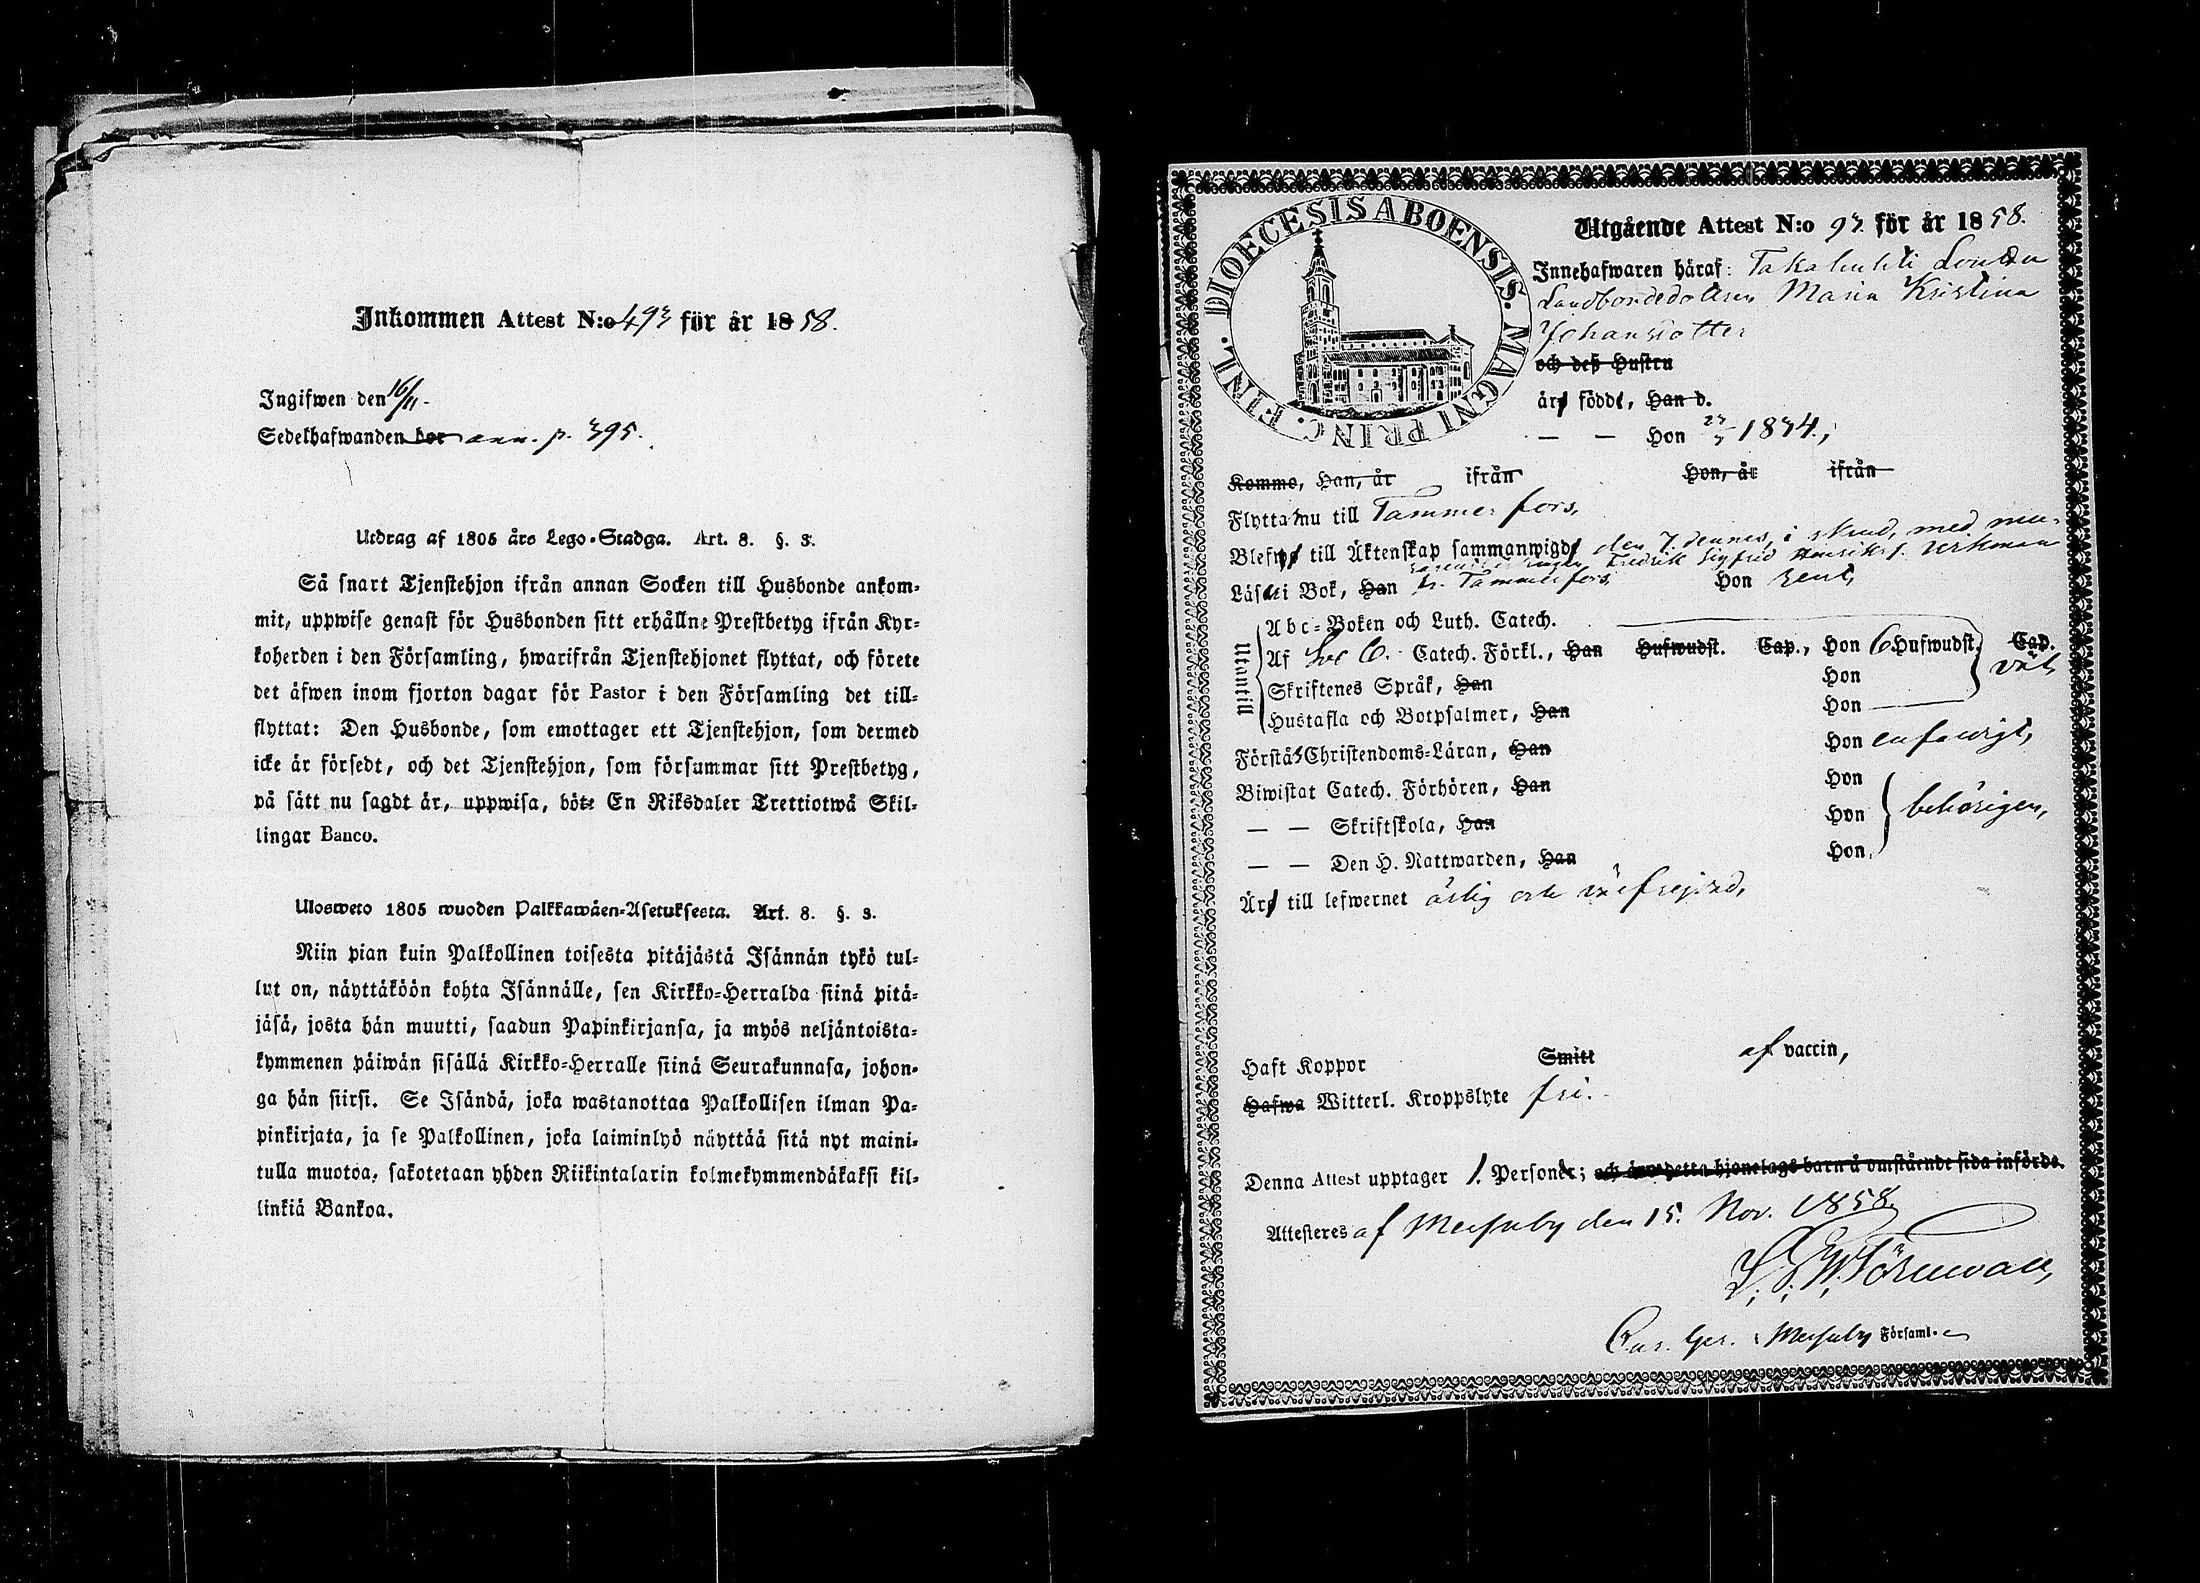 Inkommen Attest N:o 493 för år 1858.
Ingifwen den 16/11.
Sedelhafwanden bor ann. p. 395.
Utdrag af 1805 års Lego-Stadga. Art. 8. §. 3.
Så snart Tjenstehjon ifrån annan Socken till Husbonde ankom-
mit, uppwise genast för Husbonden sitt erhållne Prestbetyg ifrån Kyr-
koherden i den Församling, hwarifrån Tjenstehjonet flyttat, och förete
det äfwen inom fjorton dagar för Pastor i den Församling det till-
flyttat: Den Husbonde, som emottager ett Tjenstehjon, som dermed
icke är försedt, och det Tjenstehjon, som försummar sitt Prestbetyg,
på sätt nu sagdt är, uppwisa, böte En Riksdaler Trettiotwå Skil-
lingar Banco.
Ulosweto 1805 wuoden Palkkawäen-Asetuksesta. Art. 8. §. 3.
Niin pian kuin Palkollinen toisesta pitäjästä Isännän tykö tul-
lut on, näyttäköön kohta Isännälle, sen Kirkko-Herralda siinä pitä-
jäsä, josta hän muutti, saadun Papinkirjansa, ja myös neljäntoista-
kymmenen päiwän sisällä Kirkko-Herralle siinä Seurakunnasa, johon-
ga hän siirsi. Se Isändä, joka wastanottaa Palkollisen ilman Pa-
pinkirjata, ja se Palkollinen, joka laiminlyö näyttää sitä nyt maini-
tulla muotoa, sakotetaan yhden Riikintalarin kolmekymmendäkaksi kil-
linkiä Bankoa.
DIOECESIS ABOENSIS. MAGNI PRINC. FINL.
Utgående Attest N:o 93 för år 1858.
Innehafwaren häraf: Takahuhti
Landbondedottren Maria Kristina
Johansdotter
och deß Hustru
är född, Han d.
— — Hon 27/7 1834,
Komme, Han, år ifrån Hon, år ifrån
Flyttar nu till Tammerfors,
Blefwo till Äktenskap sammanwigd den 7 dennes, i med
Fredrik Sigfrid
Läs i Bok, Han fr. Tammerfors Hon rent,
Utantill
Abc-Boken och Luth. Catech.
Af Sve C. Catech. Förkl., Han Hufwudst. Cap., Hon 6 Hufwudst. Cap.
väl,
Skriftenes Språk, Han Hon
Hustafla och Botpsalmer, Han Hon
Förstår Christendoms-Läran, Han Hon enfaldigt,
Biwistat Catech. Förhören, Han Hon
— — Skriftskola, Han Hon behörigen,
— — Den H. Nattwarden, Han Hon
Är till lefwernet ärlig och välfrejdad,
Haft Koppor Smitt af vaccin,
Hafwa Witterl. Kroppslyte fri.
Denna Attest upptager 1. Person; och äro detta hjonelags barn å omstående sida införde.
Attesteres af Messuby den 15. Nov. 1858
Församl.